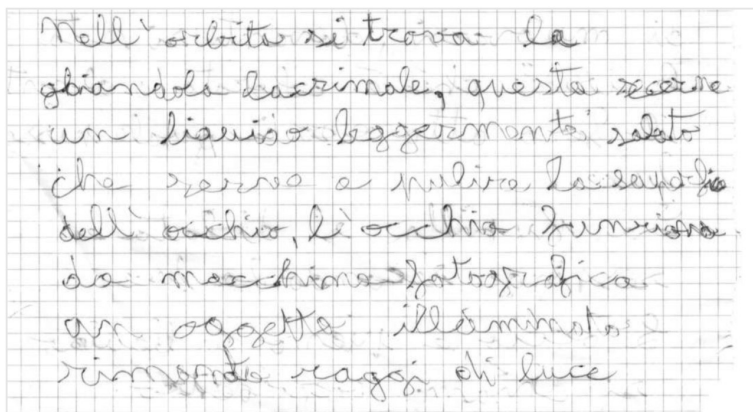 Nell'orbita si trova la
ghiandola lacrimale, questa secerne
un liquido leggermente salato
che serve a pulire la
dell'occhio, l'occhio funziona
da macchina fotografica
un oggetto illuminato
rimanda raggi di luce